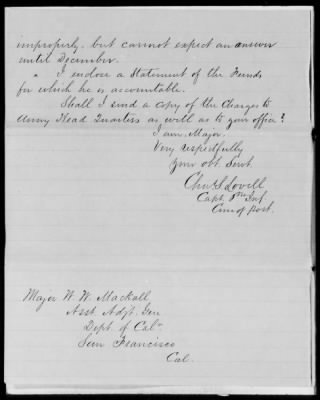 improperly, but cannot expect an answer
until December.
" I enclose a Statement of the Funds
for which he is accountable.
Shall I send a copy of the Charges to
Army Head Quarters as well as to your office?
I am, Major.
Very respectfully
Your obt. Servt.
Chas S Lovell
Capt. 6th Inf.
Com'g Post.
Major W. W. Mackall
Asst. Adjt. Gen
Dept of Cal
San Francisco
Cal.